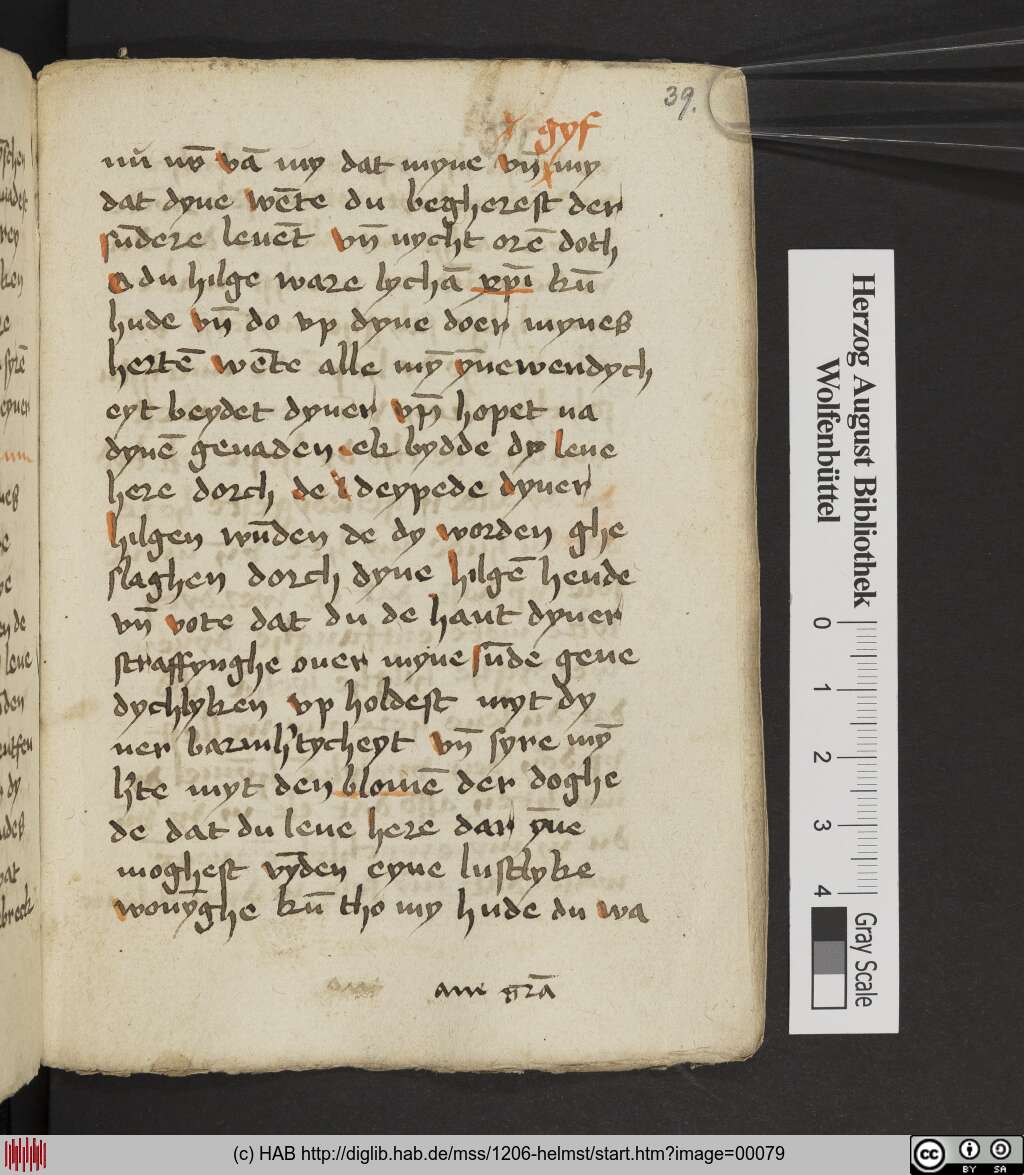 39.
gyf
nū nv̄ vā my dat myne vn̄ my
dat dyne wēte du begherest der
sūdere levēt vn̄ nycht orē doth
O du hilge ware lychā xp̄i kū
hude vn̄ do vp dyne doer mynes
hertē wēte alle mȳ ȳnewendych
eyt beydet dyner vn̄ hopet na
dynē genaden ek bydde dy leue
here dorch de deypede dyner
hilgen wūden de dy worden ghe
slaghen dorch dyne hilgē hende
vn̄ vote dat du de hant dyner
straffynghe ouer myne sūde gene
dychlyken vp holdest myt dy
ner barmh'tycheyt vn̄ syre mȳ
h'te myt den blomē der doghe
de dat du leue here dar ȳne
moghest vȳden eyne lustlyke
wonȳghe kū tho my hude du wa
aue grā
Herzog August Bibliothek
Wolfenbüttel
0 1 2 3 4
Gray Scale
(c) HAB http://diglib.hab.de/mss/1206-helmst/start.htm?image=00079
cc BY SA